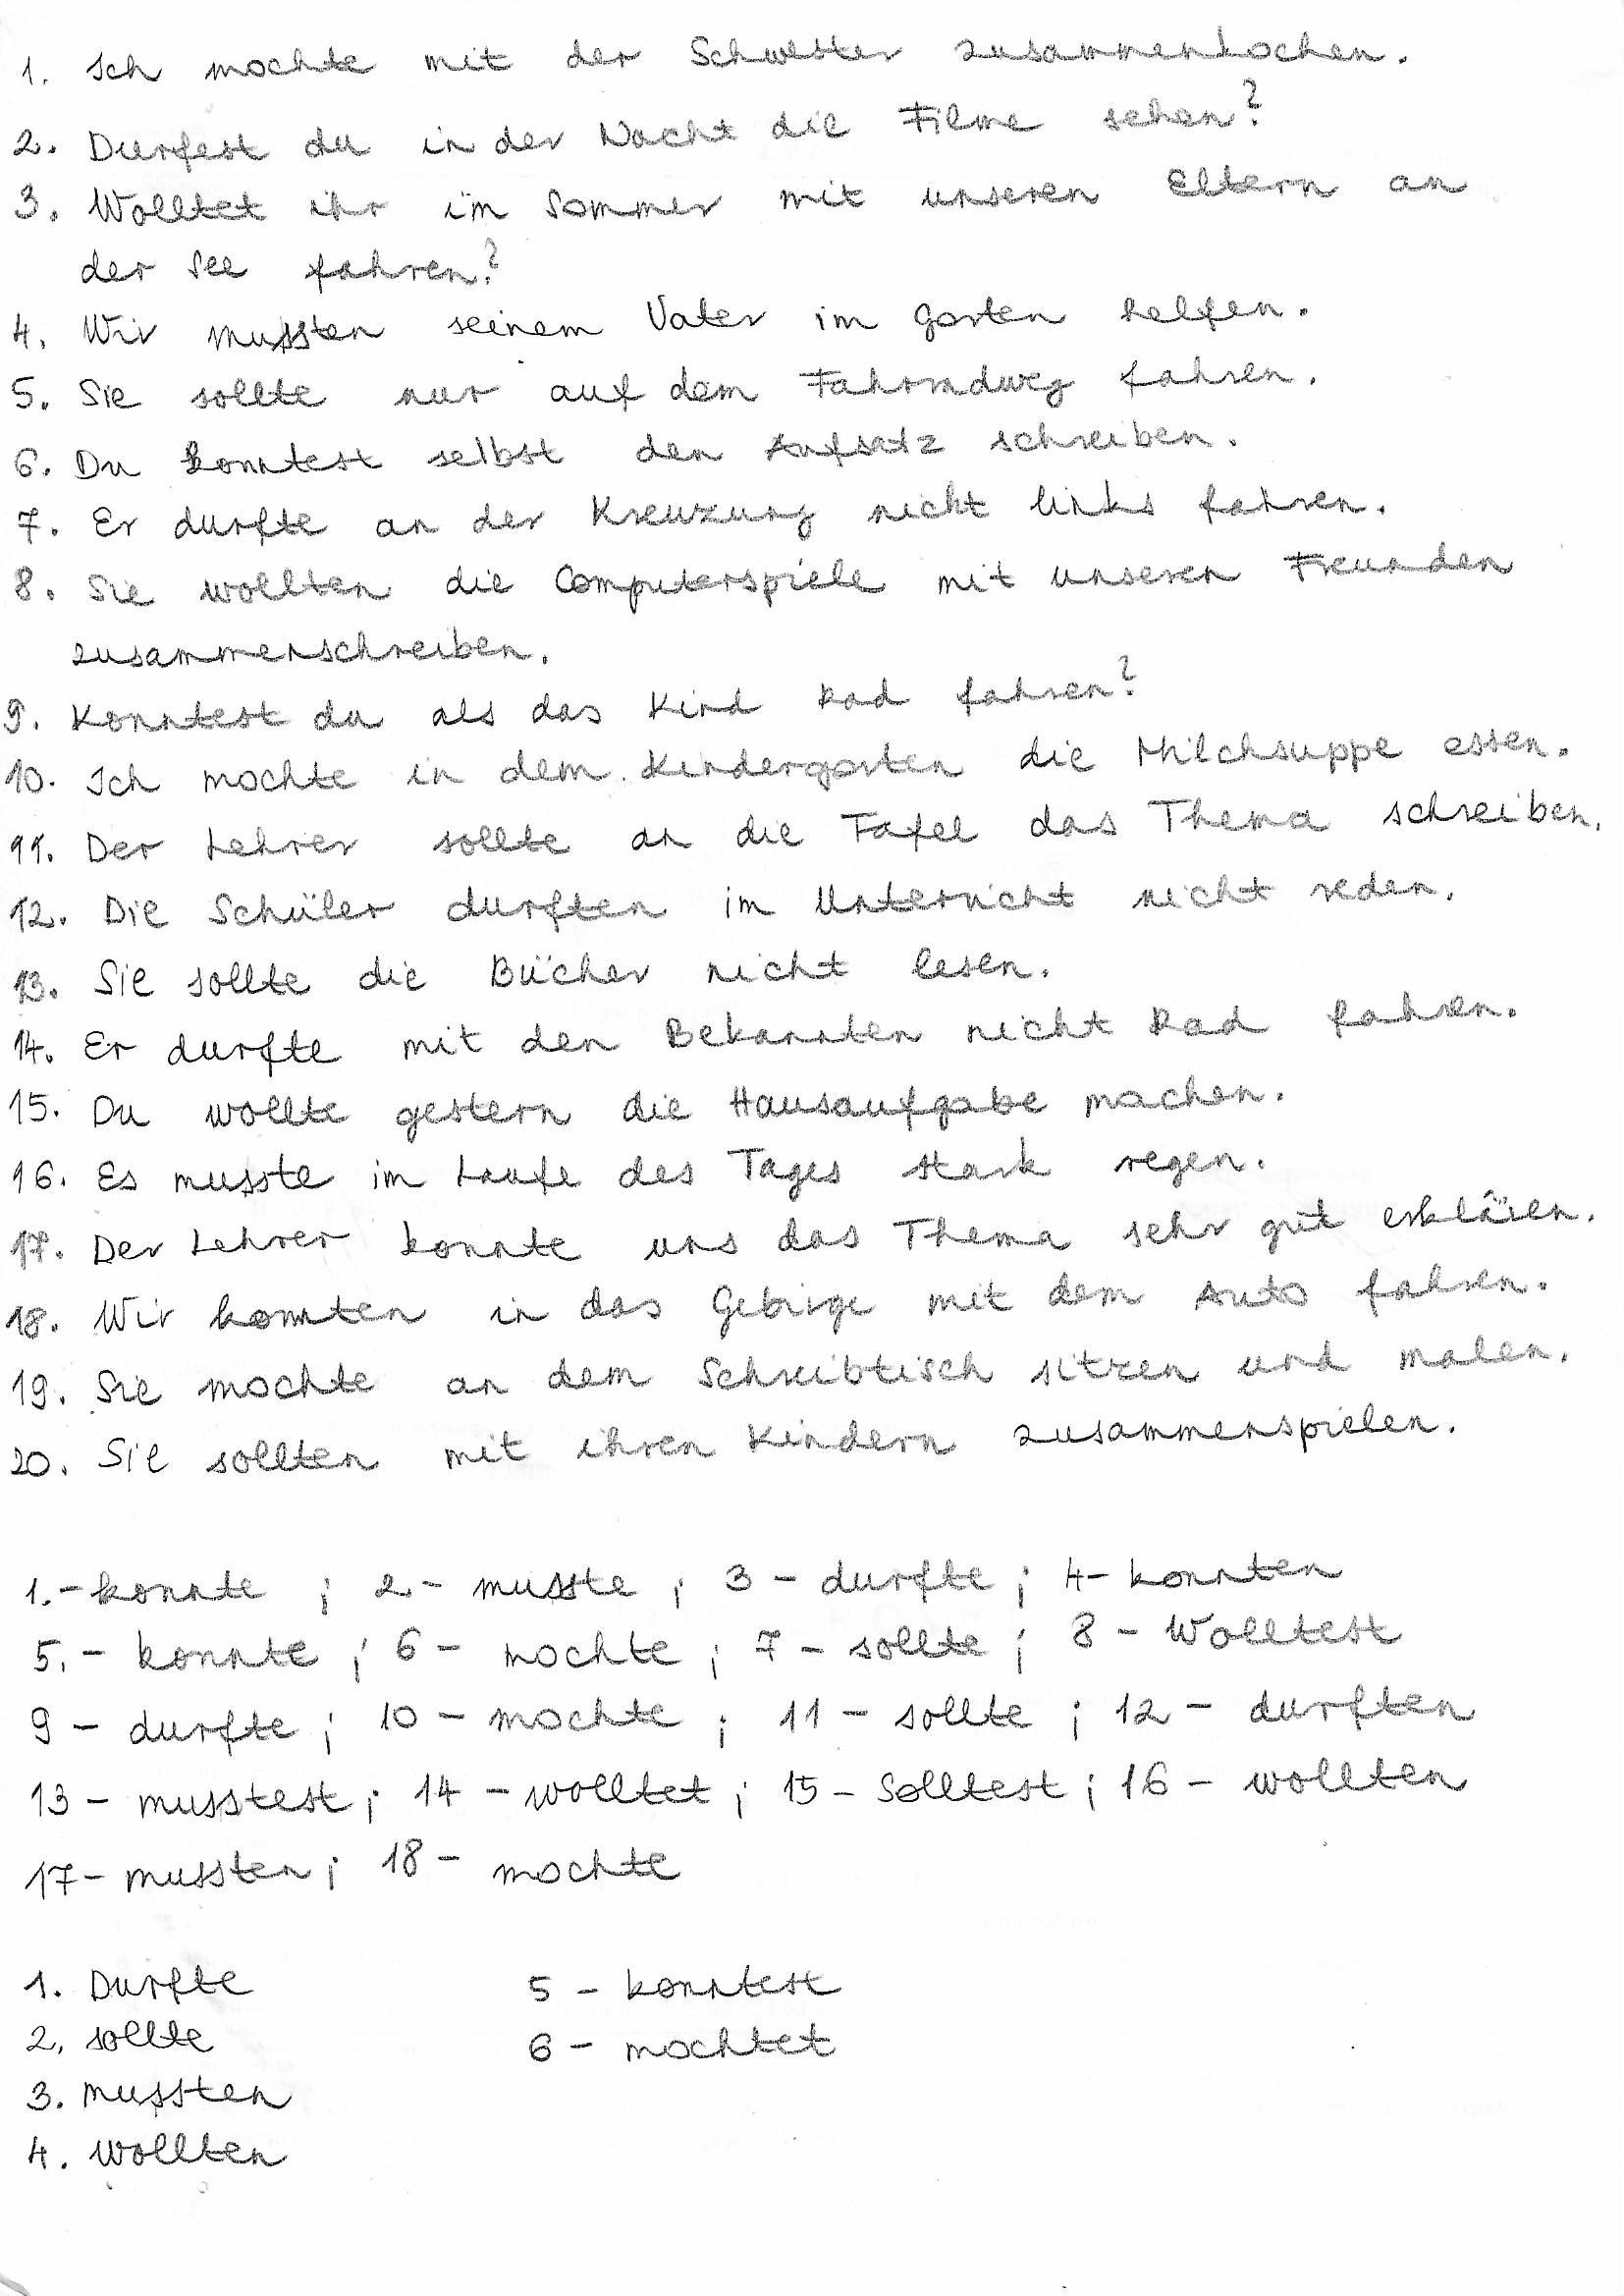 1. Ich mochte mit der Schwester zusammenkochen.
2. Durfest du in der Nacht die Filme sehen?
3. Wolltet ihr im Sommer mit unseren Eltern an
der See fahren?
4. Wir mussten seinem Vater im Garten helfen.
5. Sie sollte nur auf dem Fahrradweg fahren.
6. Du konntest selbst den Aufsatz schreiben.
7. Er durfte an der Kreuzung nicht links fahren.
8. Sie wollten die Computerspiele mit unseren Freunden
zusammenschreiben.
9. Konntest du als das Kind Rad fahren?
10. Ich mochte in dem Kindergarten die Milchsuppe essen.
11. Der Lehrer sollte an die Tafel das Thema schreiben.
12. Die Schüler durften im Unterricht nicht reden.
13. Sie sollte die Bücher nicht lesen.
14. Er durfte mit den Bekannten nicht Rad fahren.
15. Du wollte gestern die Hausaufgabe machen.
16. Es musste im Laufe des Tages stark regen.
17. Der Lehrer konnte uns das Thema sehr gut erklären.
18. Wir konnten in das Gebirge mit dem Auto fahren.
19. Sie mochte an dem Schreibtisch sitzen und malen.
20. Sie sollten mit ihren Kindern zusammenspielen.
1.- konnte ; 2 - musste ; 3 - durfte ; 4- konnten
5.- konnte ; 6 - mochte ; 7 - sollte ; 8 - Wolltest
9 - durfte ; 10 - mochte ; 11 - sollte ; 12 - durften
13 - musstest ; 14 - wolltet ; 15 - Solltest ; 16 - wollten
17 - mussten ; 18 - mochte
1. Durfte
2. sollte
3. mussten
4. wollten
5 - konntest
6 - mochtet